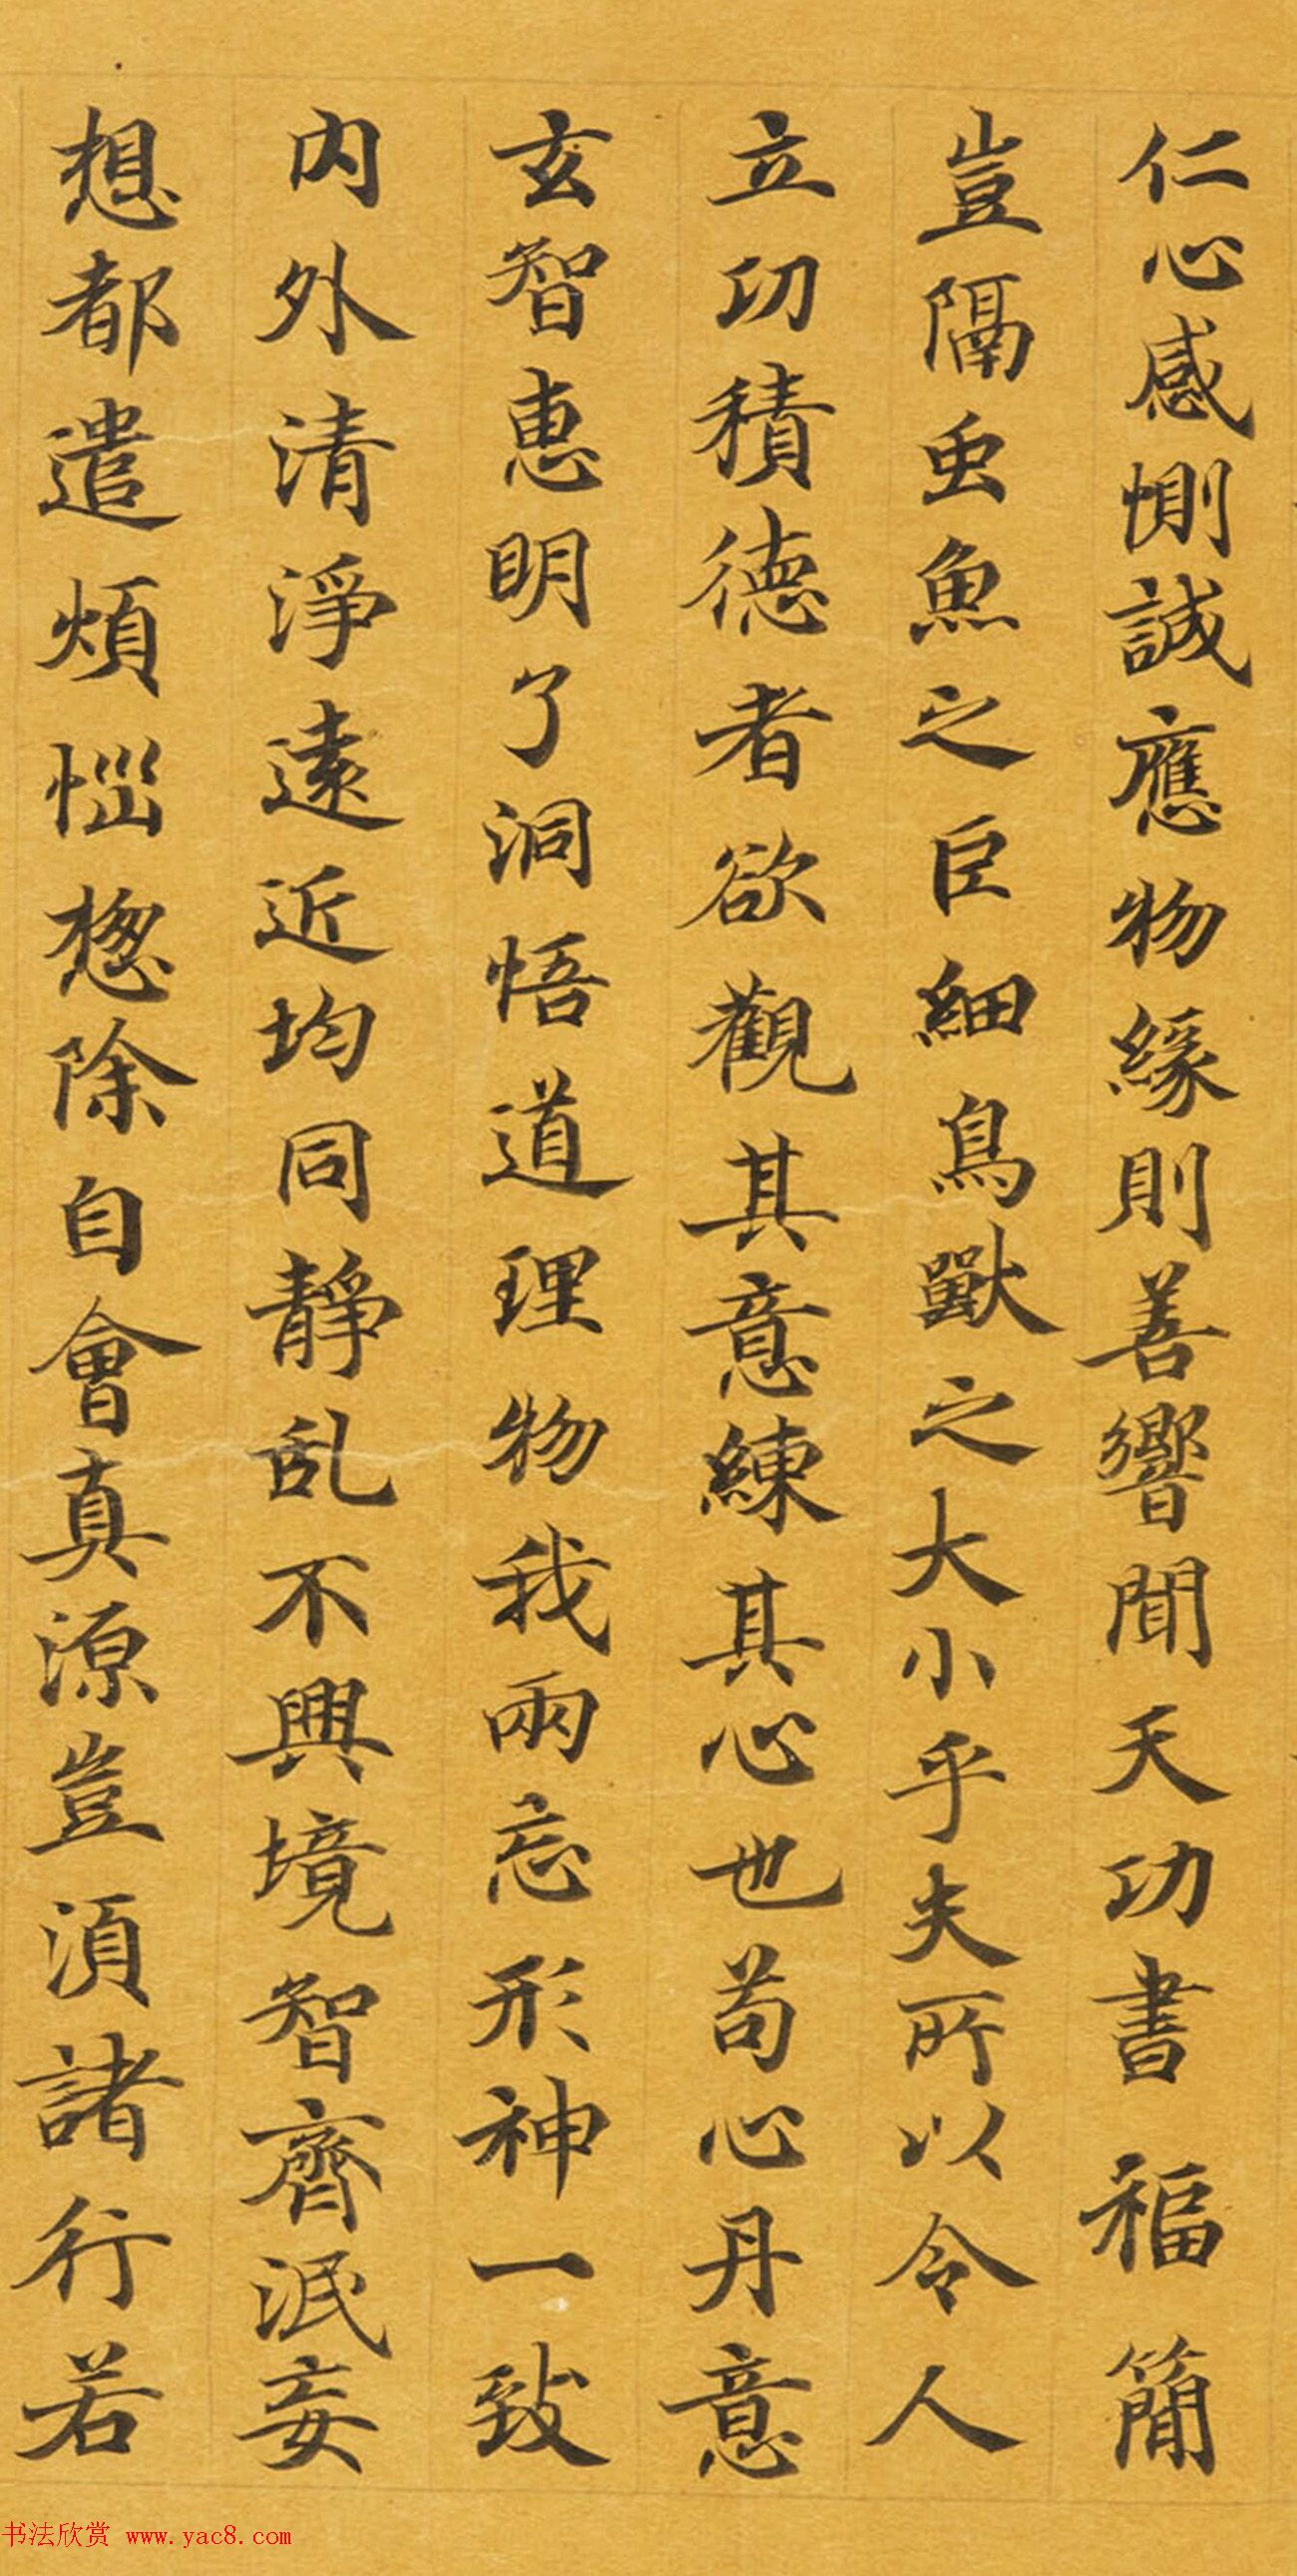 仁心感惻誠應物緣則善響聞天功書福簡
豈隔虫魚之巨細鳥獸之大小乎夫所以令人
立功積德者欲觀其意練其心也苟心丹意
玄智惠明了洞悟道理物我兩忘形神一致
内外清淨遠近均同靜乱不興境智齊泯妄
想都遣煩惱惣除自會真源豈須諸行若
书法欣赏 www.yac8.com